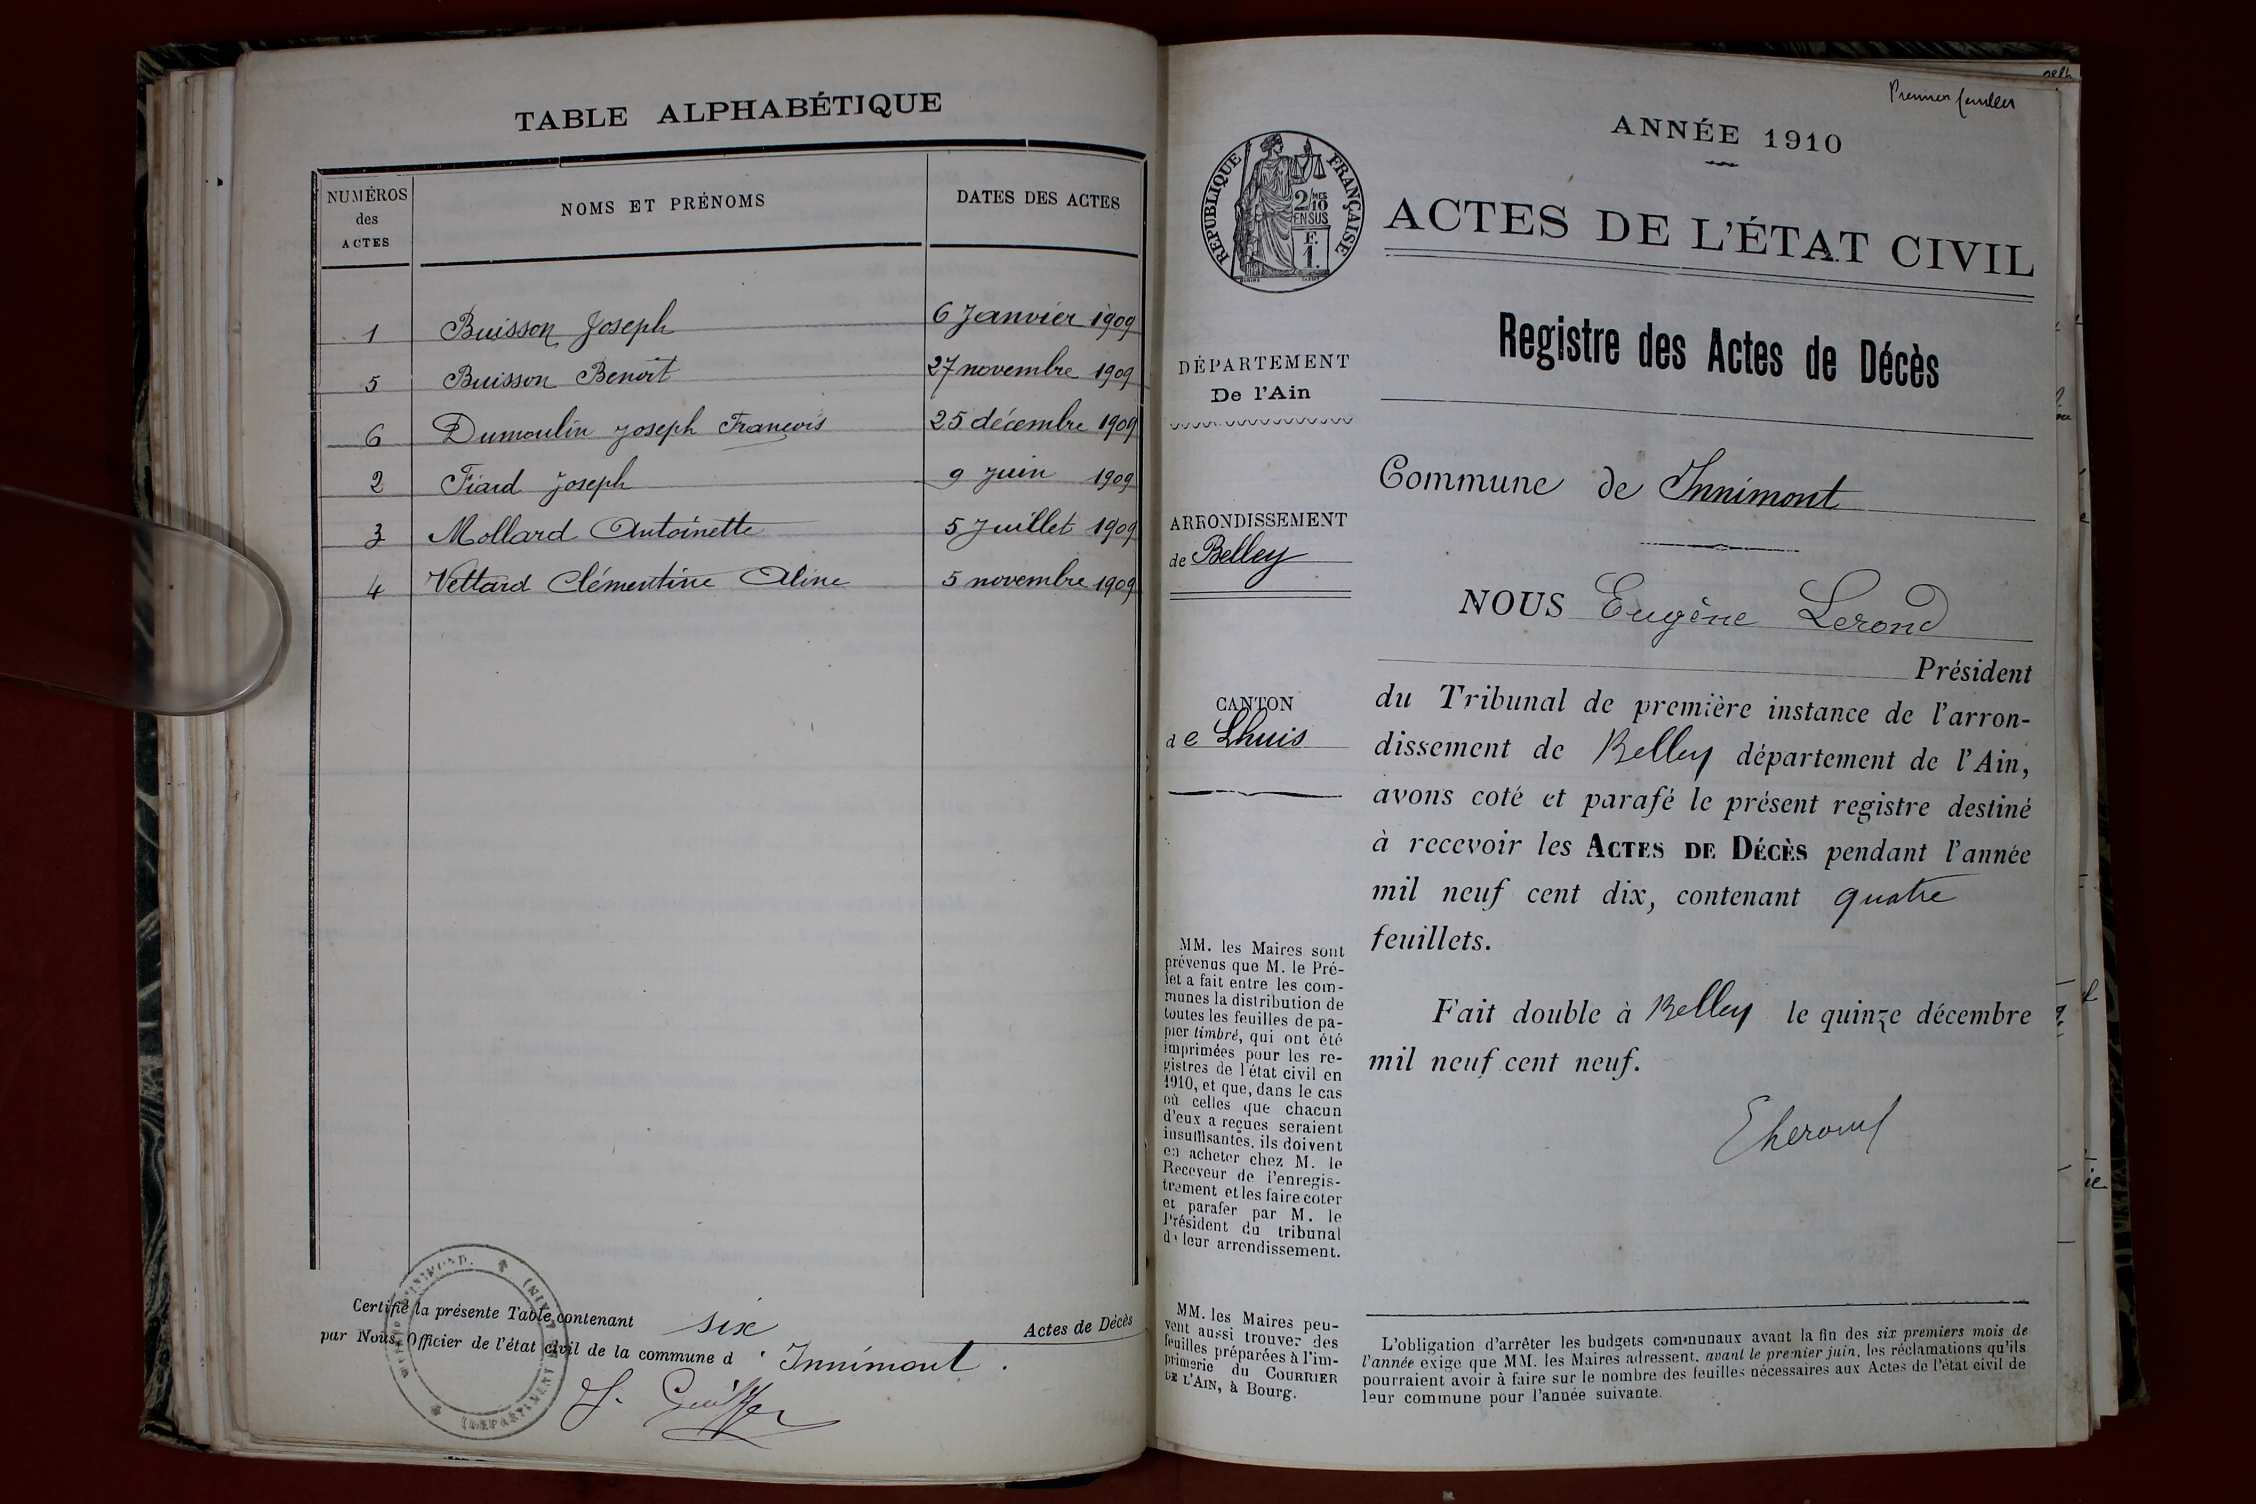 TABLE ALPHABÉTIQUE
NUMÉROS des ACTES NOMS ET PRÉNOMS DATES DES ACTES
1 Buisson Joseph 6 Janvier 1909
5 Buisson Benoit 27 novembre 1909
6 Dumoulin Joseph François 25 décembre 1909
2 Fiard Joseph 9 Juin 1909
3 Mollard Antoinette 5 Juillet 1909
4 Vettard Clémentine Aline 5 novembre 1909
Certifié la présente Table contenant six Actes de Décès
par Nous, Officier de l'état civil de la commune d' Innimont.
Premier feuillet
ANNÉE 1910
RÉPUBLIQUE FRANÇAISE
2/10 MES
EN SUS
F.
1.
ACTES DE L'ÉTAT CIVIL
Registre des Actes de Décès
DÉPARTEMENT
De l'Ain
ARRONDISSEMENT
de Belley
CANTON
de Lhuis
MM. les Maires sont
prévenus que M. le Pré-
fet a fait entre les com-
munes la distribution de
toutes les feuilles de pa-
pier timbré, qui ont été
imprimées pour les re-
gistres de l'état civil en
1910, et que, dans le cas
où celles que chacun
d'eux a reçues seraient
insuffisantes, ils doivent
en acheter chez M. le
Receveur de l'enregis-
trement et les faire coter
et parafer par M. le
Président du tribunal
de leur arrondissement.
MM. les Maires peu-
vent aussi trouver des
feuilles préparées à l'im-
primerie du COURRIER
DE L'AIN, à Bourg.
Commune de Innimont
NOUS Eugène Lerond
Président
du Tribunal de première instance de l'arron-
dissement de Belley département de l'Ain,
avons coté et parafé le présent registre destiné
à recevoir les ACTES DE DÉCÈS pendant l'année
mil neuf cent dix, contenant quatre
feuillets.
Fait double à Belley le quinze décembre
mil neuf cent neuf.
L'obligation d'arrêter les budgets communaux avant la fin des six premiers mois de
l'année exige que MM. les Maires adressent, avant le premier juin, les réclamations qu'ils
pourraient avoir à faire sur le nombre des feuilles nécessaires aux Actes de l'état civil de
leur commune pour l'année suivante.